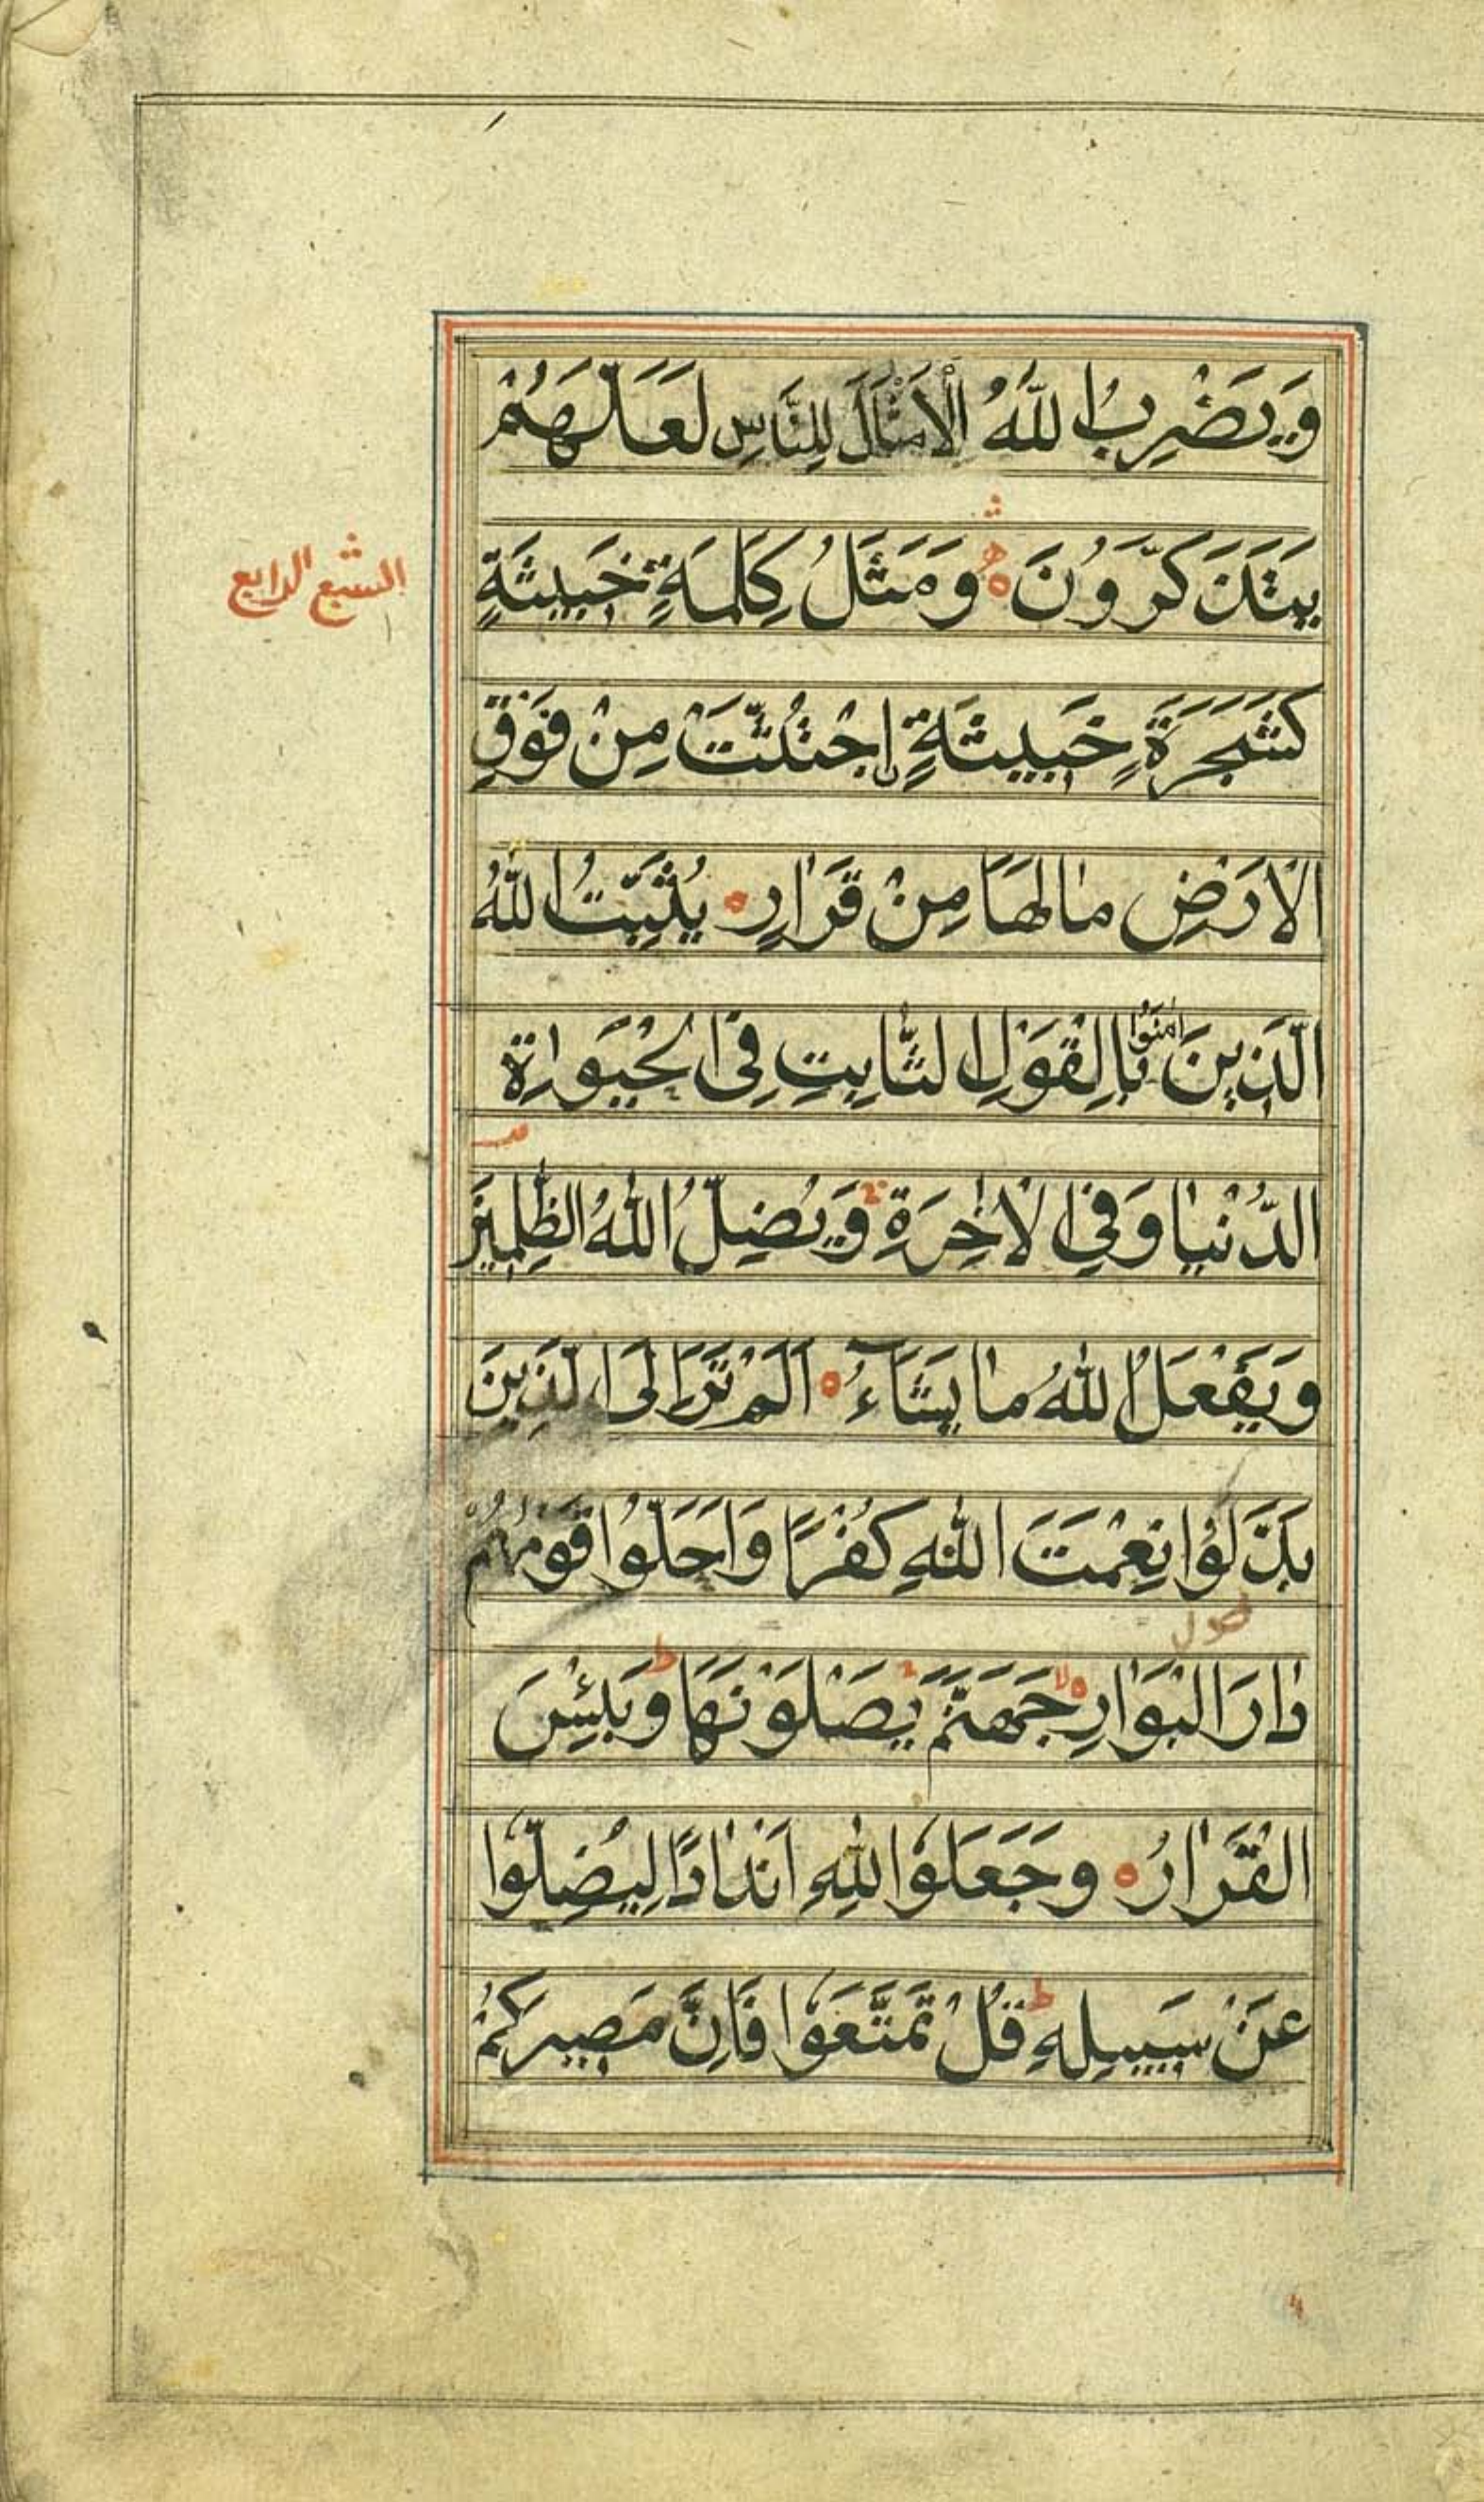 وَيَضْرِبُ اللّٰهُ الْاَمْثَالَ لِلنَّاسِ لَعَلَّهُمْ
يَتَذَكَّرُوْنَ ه وَمَثَلُ كَلِمَةٍ خَبِيْثَةٍ
السبع الرابع
كَشَجَرَةٍ خَبِيْثَةٍ اجْتُثَّتْ مِنْ فَوْقِ
الْاَرْضِ مَا لَهَا مِنْ قَرَارٍ ه يُثَبِّتُ اللّٰهُ
الَّذِيْنَ اٰمَنُوْا بِالْقَوْلِ الثَّابِتِ فِى الْحَيٰوةِ
الدُّنْيَا وَفِى الْاٰخِرَةِ وَيُضِلُّ اللّٰهُ الظّٰلِمِيْنَ
وَيَفْعَلُ اللّٰهُ مَا يَشَآءُ ه اَلَمْ تَرَ اِلَى الَّذِيْنَ
بَدَّلُوْا نِعْمَتَ اللّٰهِ كُفْرًا وَاَحَلُّوْا قَوْمَهُمْ
دَارَ الْبَوَارِ ه لا جَهَنَّمَ يَصْلَوْنَهَا ط وَبِئْسَ
الْقَرَارُ ه وَجَعَلُوْا لِلّٰهِ اَنْدَادًا لِيُضِلُّوْا
عَنْ سَبِيْلِهِ ط قُلْ تَمَتَّعُوْا فَاِنَّ مَصِيْرَكُمْ